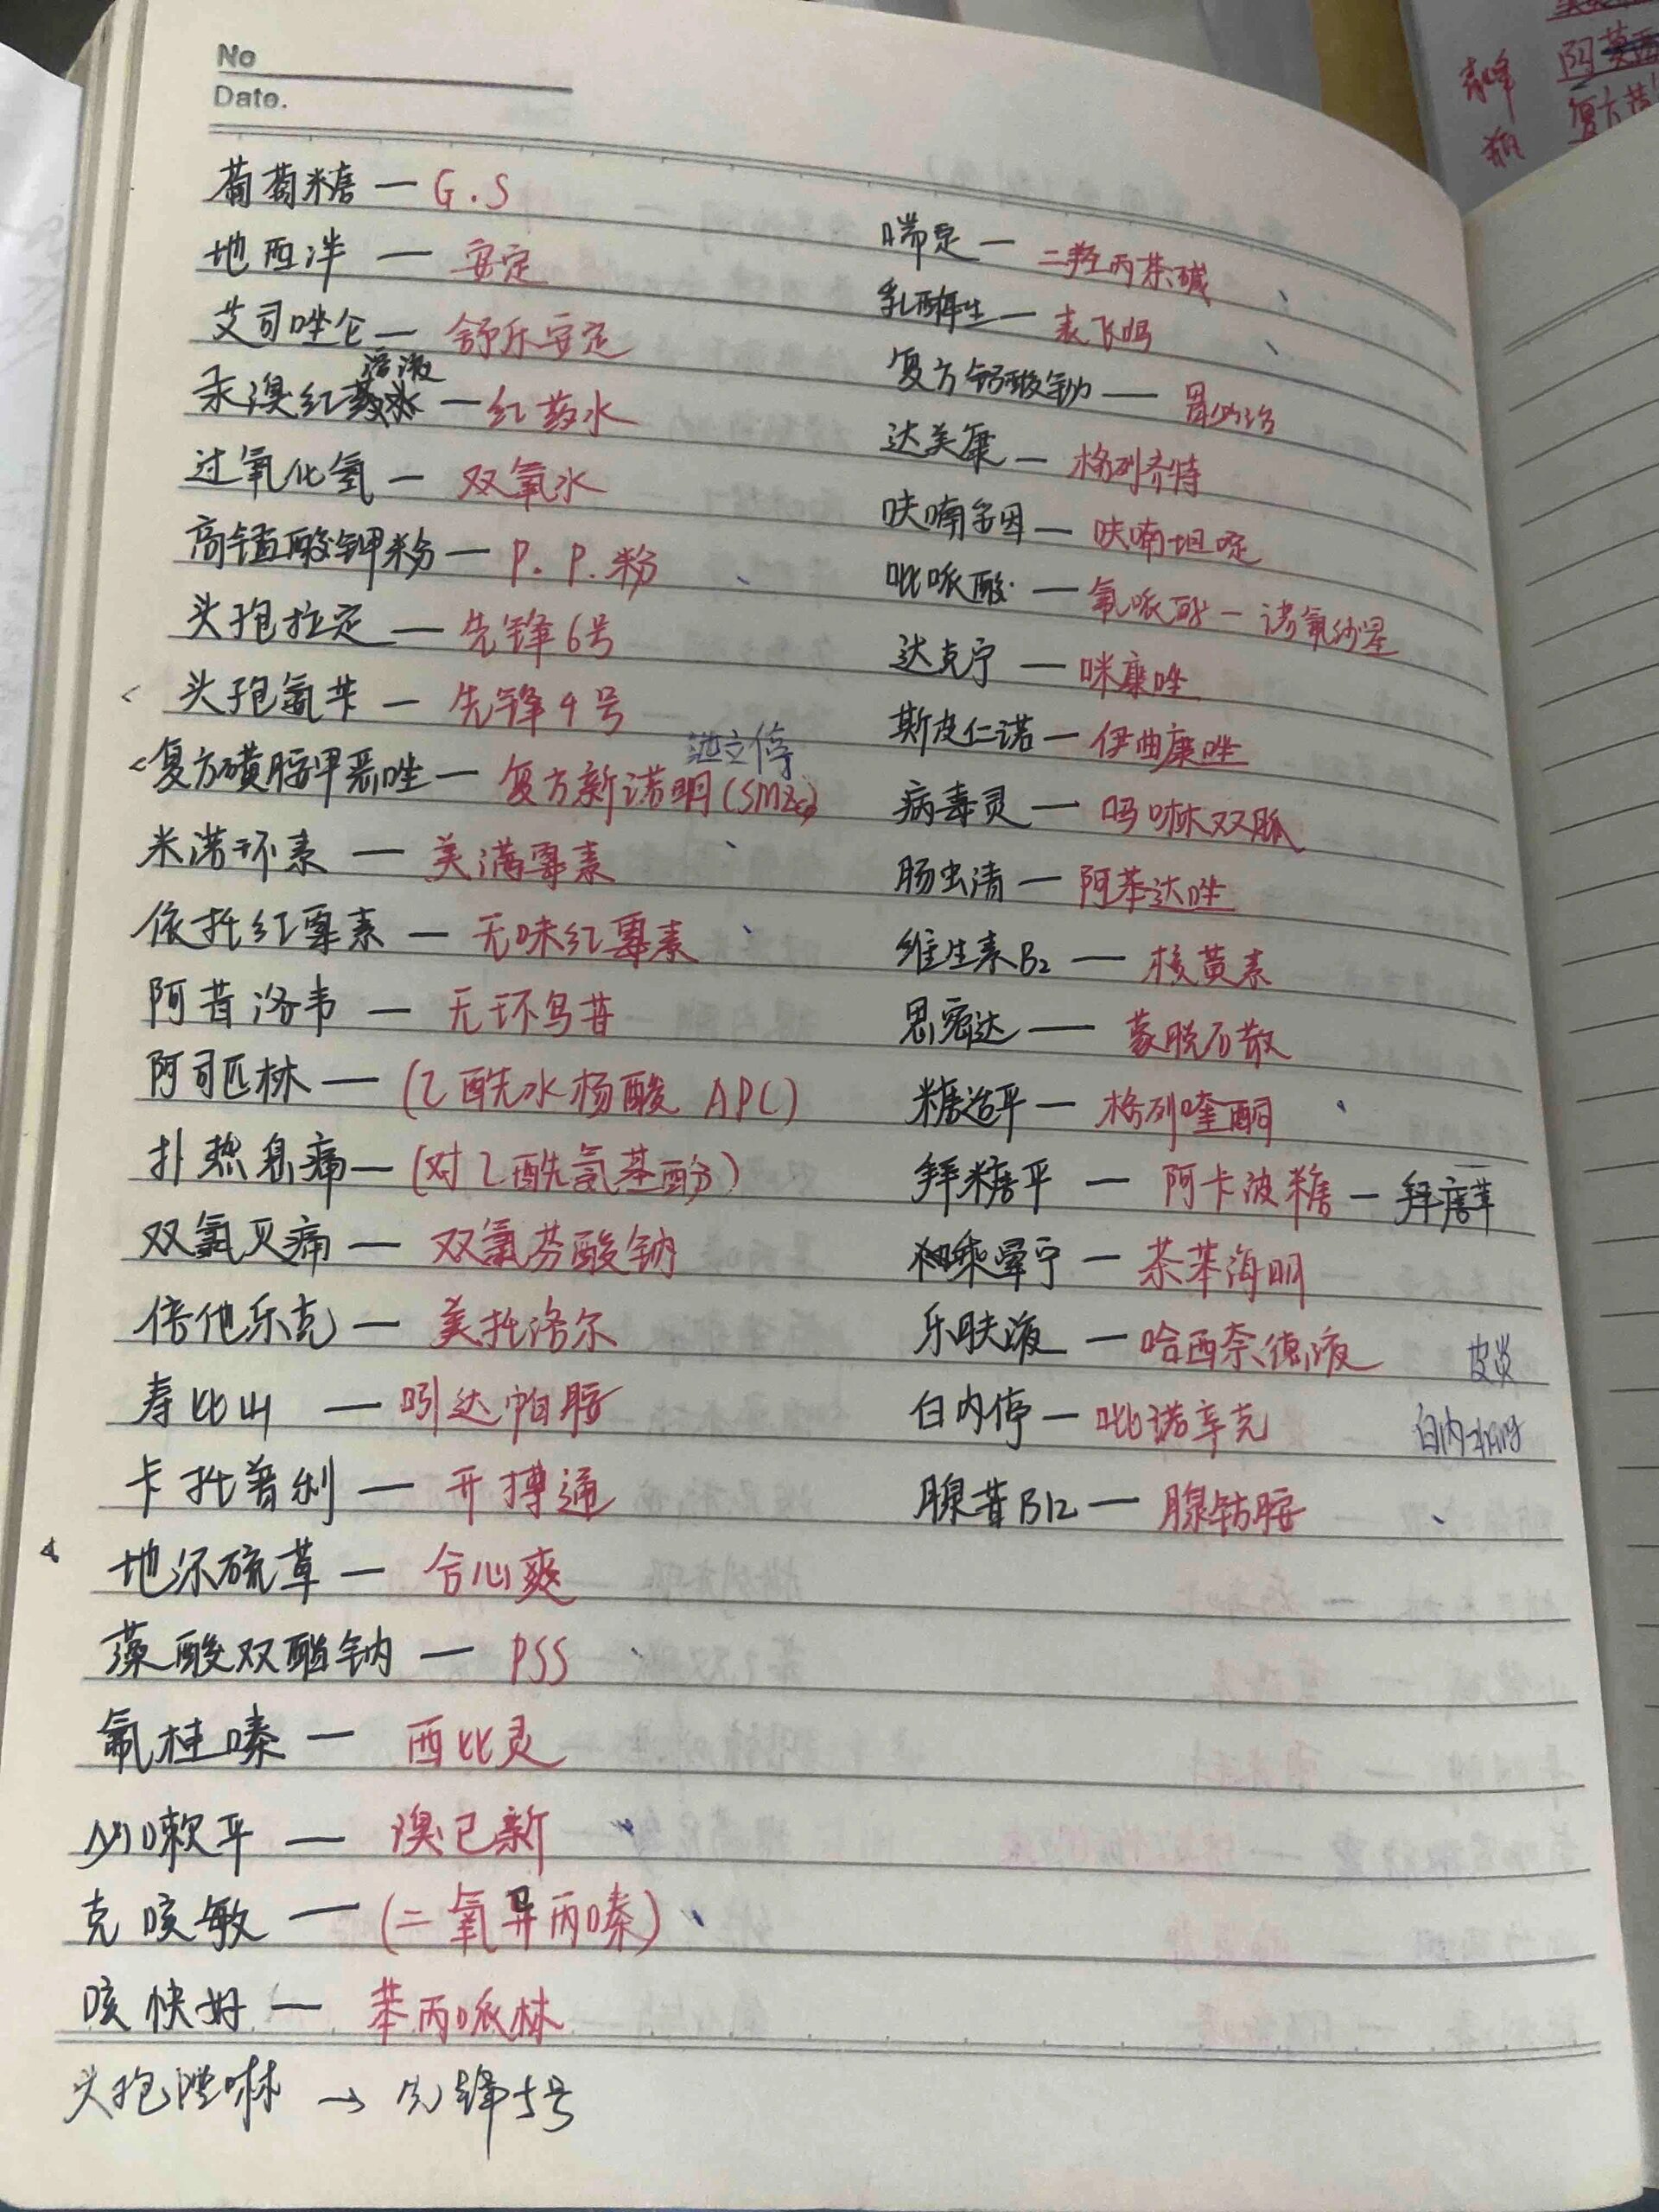 No
Date.
葡萄糖 — G.S
地西泮 — 安定
艾司唑仑 — 舒乐安定
溶液
汞溴红 — 红药水
过氧化氢 — 双氧水
高锰酸钾粉 — P.P.粉
头孢拉定 — 先锋6号
头孢氨苄 — 先锋4号
复方磺胺甲恶唑 — 复方新诺明(SMZco)
米诺环素 — 美满霉素
依托红霉素 — 无味红霉素
阿昔洛韦 — 无环鸟苷
阿司匹林 — (乙酰水杨酸 APC)
扑热息痛 — (对乙酰氨基酚)
双氯灭痛 — 双氯芬酸钠
倍他乐克 — 美托洛尔
寿比山 — 吲达帕胺
卡托普利 — 开搏通
地尔硫草 — 合心爽
藻酸双酯钠 — PSS
氟桂嗪 — 西比灵
必嗽平 — 溴已新
克咳敏 — (二氧异丙嗪)
咳快好 — 苯丙哌林
头孢唑啉 → 先锋5号
喘定 — 二羟丙茶碱
乳酶生 — 表飞鸣
复方铝酸铋 — 胃必治
达美康 — 格列齐特
呋喃妥因 — 呋喃坦啶
吡哌酸 — 氟哌酸 — 诺氟沙星
达克宁 — 咪康唑
斯皮仁诺 — 伊曲康唑
病毒灵 — 吗啉双胍
肠虫清 — 阿苯达唑
维生素B2 — 核黄素
思密达 — 蒙脱石散
糖适平 — 格列喹酮
拜糖平 — 阿卡波糖 — 拜唐苹
乘晕宁 — 茶苯海明
乐肤液 — 哈西奈德液 皮炎
白内停 — 吡诺辛克 白内zhang
腺苷B12 — 腺钴胺